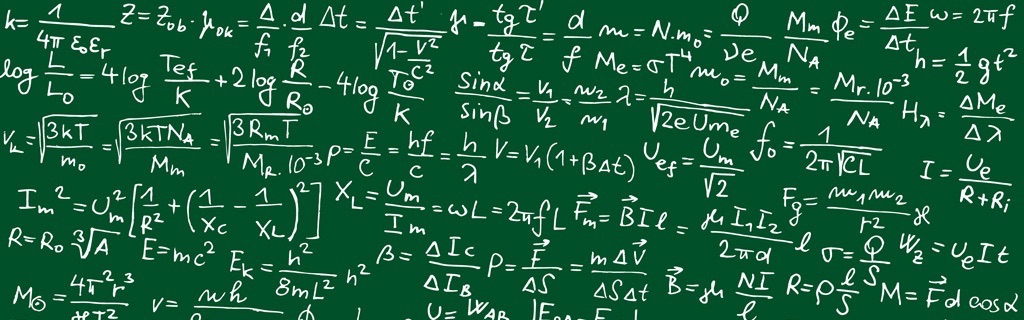 k = 1/(4π ε₀εᵣ) Z = Z_ob · μ_ok = Δ/f₁ · d/f₂ Δt = Δt'/√(1 - v²/c²) γ = tg τ'/tg τ = d/f m = N.m₀ = Q/νe M_m/N_A ϕe = ΔE/Δt ω = 2πf
log L/L₀ = 4 log T_ef/K + 2 log R/R⊙ - 4 log T⊙/K sinα/sinβ = v₁/v₂ = n₂/n₁ M_e = σT⁴ m₀ = M_m/N_A = M_r.10⁻³/N_A h = 1/2 gt²
λ = h/√(2eUm_e) H_λ = ΔM_e/Δλ
v_k = √(3kT/m₀) = √(3kTN_A/M_m) = √(3R_mT/M_r.10⁻³) p = E/c = hf/c = h/λ V = V₁(1+βΔt) U_ef = U_m/√2 f₀ = 1/(2π√CL) I = U_e/(R+R_i)
I_m² = U_m²[1/R² + (1/X_C - 1/X_L)²] X_L = U_m/I_m = ωL = 2πfL F⃗_m = B⃗Il = μI₁I₂/(2πd) l F_g = m₁m₂/r² ϰ
R = R₀ ³√A E = mc² E_k = h²/(8mL²) n² β = ΔI_C/ΔI_B p = F⃗/ΔS = mΔv⃗/(ΔSΔt) σ = Q/S W_z = U_eIt
M⊙ = 4π²r³/ϰT² v = nh B⃗ = μ NI/l R = ρ l/S M = F⃗d cosα
U = W_AB